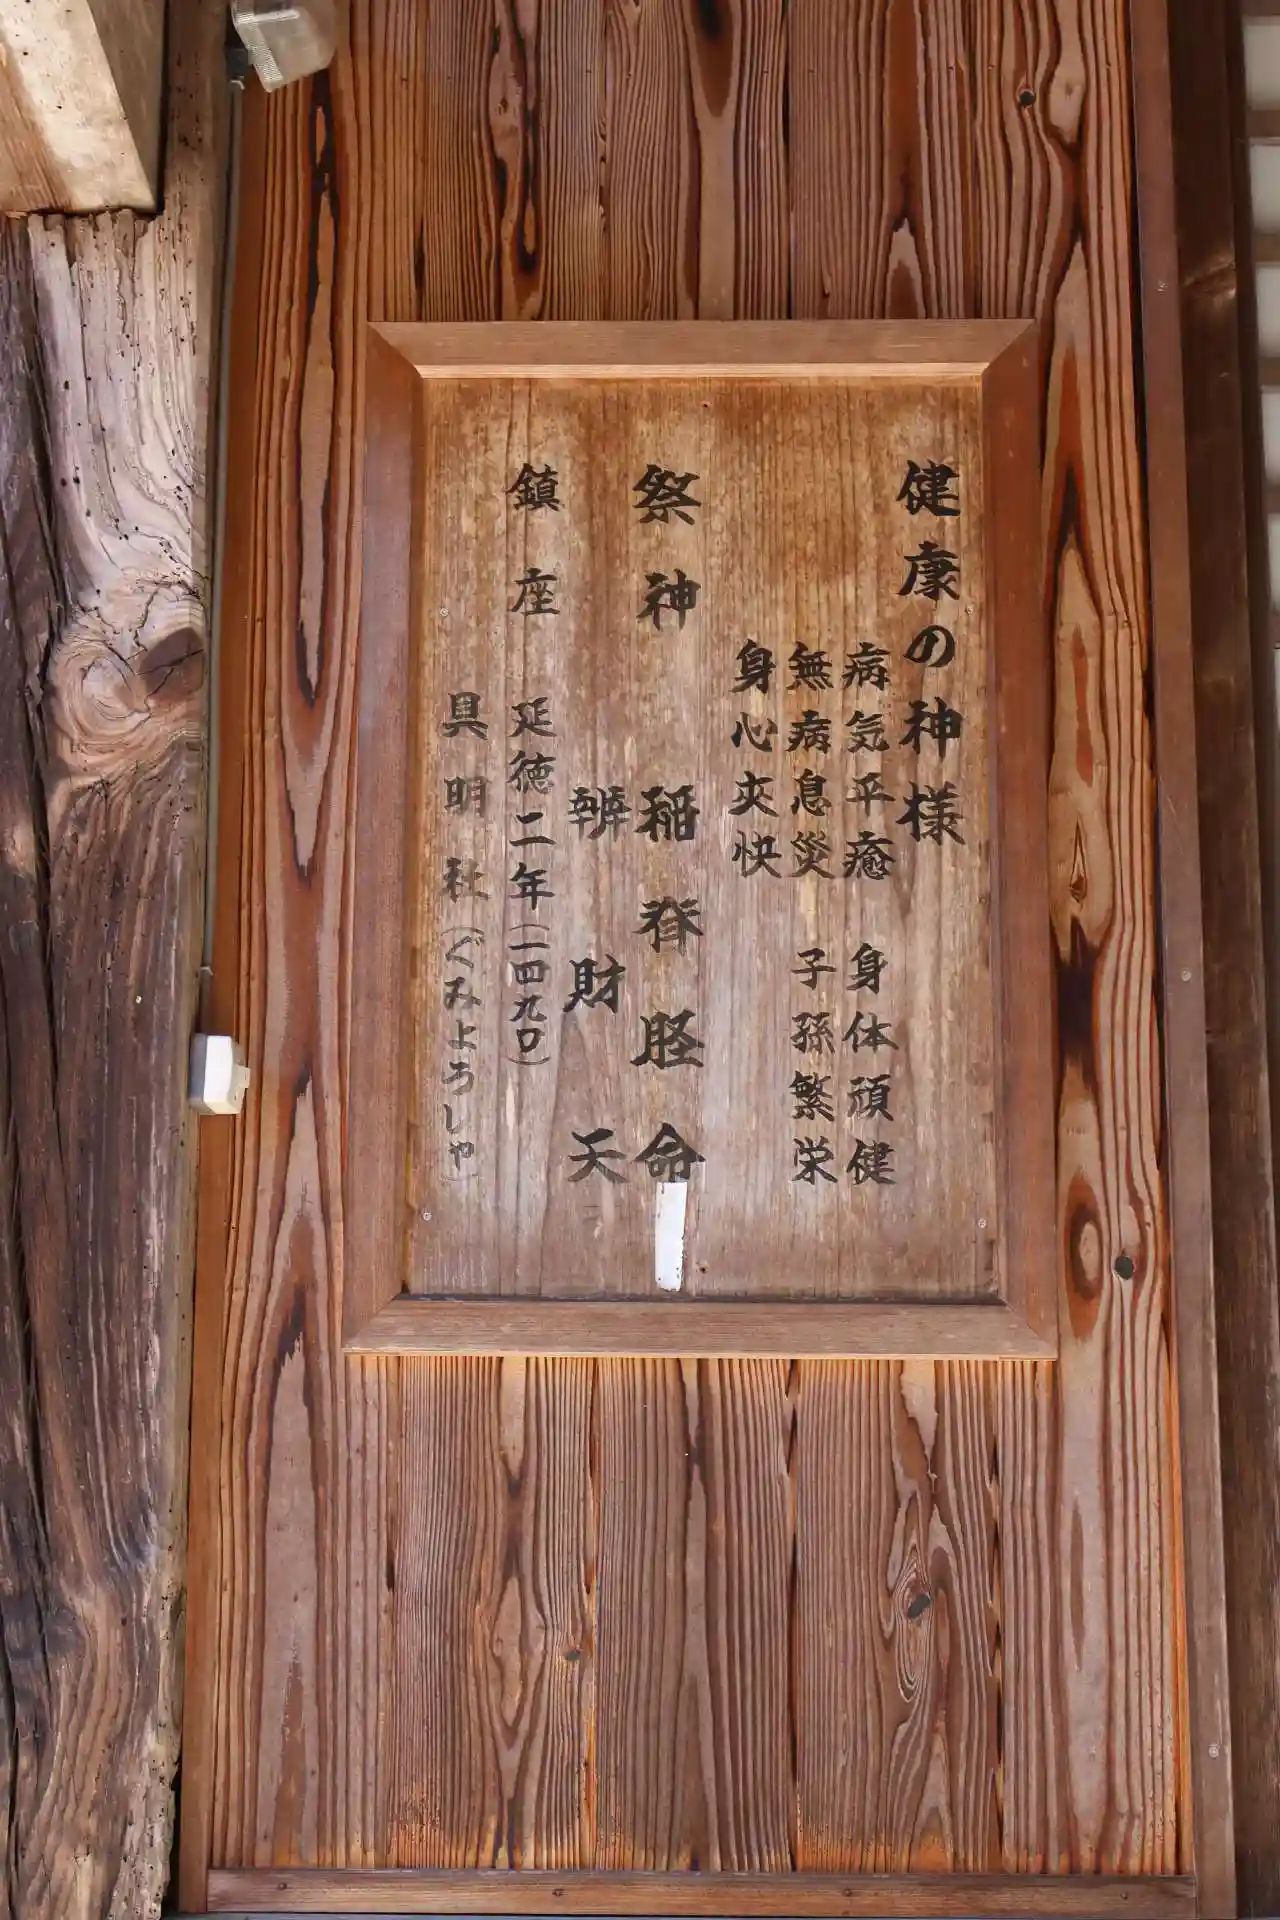 健康の神様
病気平癒 身体頑健
無病息災 子孫繁栄
身心夾快
祭神 稲脊脛命
辨財天
鎮座 延徳二年(一四九〇)
具明社(ぐみょうしゃ)